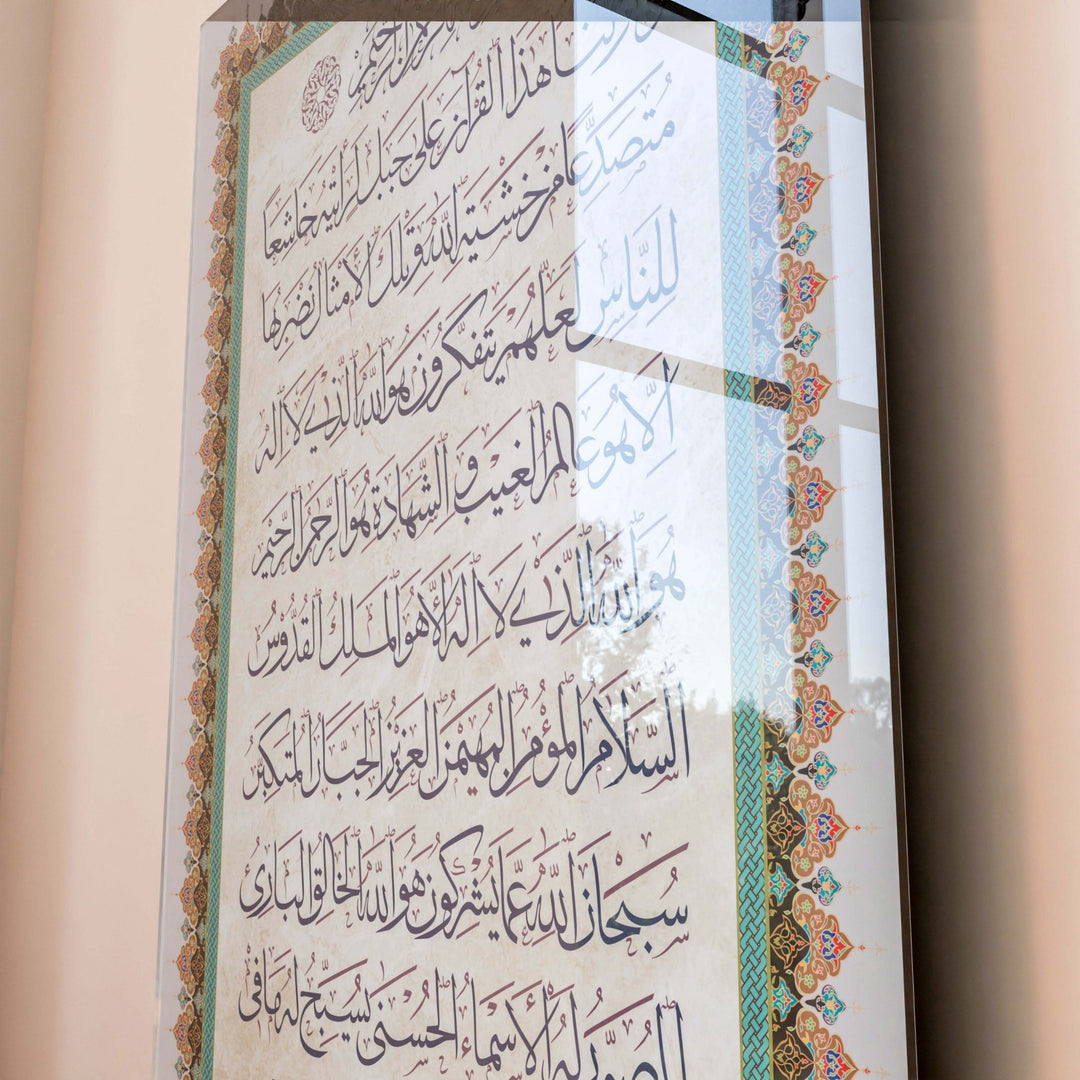 الرحيم
هذا القرآن على جبل لرأيته خاشعا
مُتصدِّعًا من خشية الله وتلك الأمثال نضربها
للناس لعلهم يتفكرون هو الله الذي لا إله
إلا هو عالم الغيب والشهادة هو الرحمن الرحيم
هو الله الذي لا إله إلا هو الملك القدوس
السلام المؤمن المهيمن العزيز الجبار المتكبر
سبحان الله عما يشركون هو الله الخالق البارئ
المصور له الأسماء الحسنى يسبح له ما في